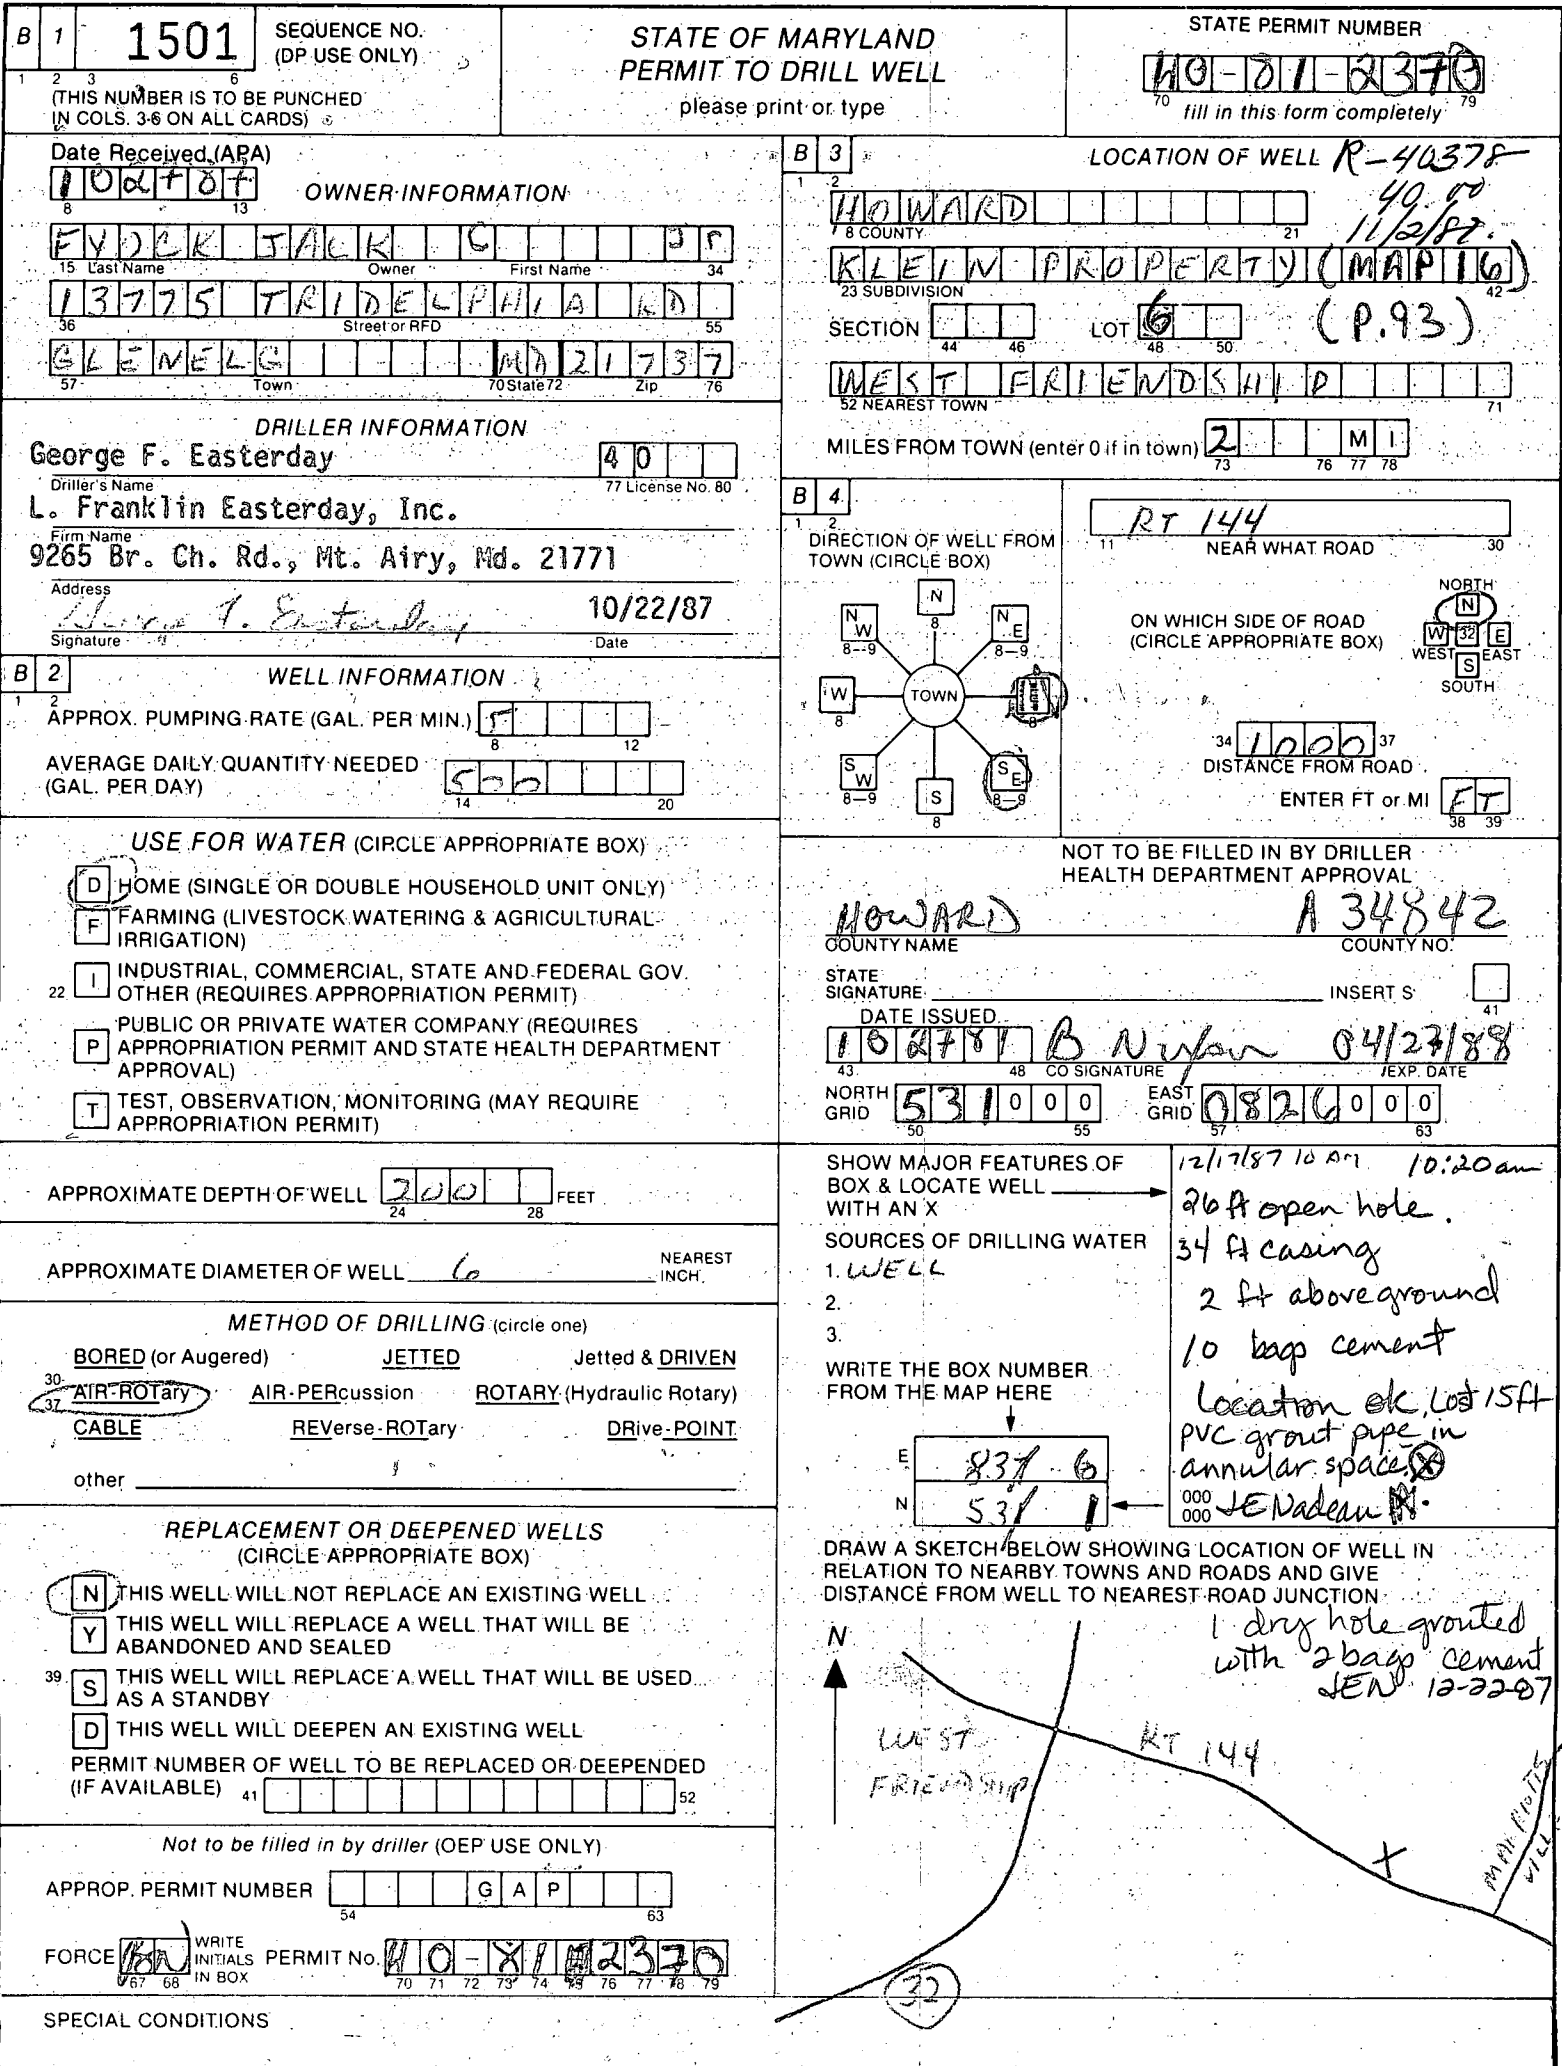 B 1 1501 SEQUENCE NO. (DP USE ONLY)
1 2 3 6
(THIS NUMBER IS TO BE PUNCHED
IN COLS. 3-6 ON ALL CARDS)
STATE OF MARYLAND
PERMIT TO DRILL WELL
please print or type
STATE PERMIT NUMBER
HO-81-2370
70 79
fill in this form completely
Date Received (APA)
102787
8 13
OWNER INFORMATION
FYOCK JACK C Jr
15 Last Name Owner First Name 34
13775 TRIDELPHIA RD
36 Street or RFD 55
GLENELG MD 21737
57 Town 70 State 72 Zip 76
DRILLER INFORMATION
George F. Easterday 40
Driller's Name 77 License No. 80
L. Franklin Easterday, Inc.
Firm Name
9265 Br. Ch. Rd., Mt. Airy, Md. 21771
Address
George F. Easterday 10/22/87
Signature Date
B 2 WELL INFORMATION
1 2
APPROX. PUMPING RATE (GAL. PER MIN.) 5
8 12
AVERAGE DAILY QUANTITY NEEDED
(GAL. PER DAY) 500
14 20
USE FOR WATER (CIRCLE APPROPRIATE BOX)
D HOME (SINGLE OR DOUBLE HOUSEHOLD UNIT ONLY)
F FARMING (LIVESTOCK WATERING & AGRICULTURAL
IRRIGATION)
22 I INDUSTRIAL, COMMERCIAL, STATE AND FEDERAL GOV.
OTHER (REQUIRES APPROPRIATION PERMIT)
P PUBLIC OR PRIVATE WATER COMPANY (REQUIRES
APPROPRIATION PERMIT AND STATE HEALTH DEPARTMENT
APPROVAL)
T TEST, OBSERVATION, MONITORING (MAY REQUIRE
APPROPRIATION PERMIT)
APPROXIMATE DEPTH OF WELL 200 FEET
24 28
APPROXIMATE DIAMETER OF WELL 6 NEAREST
INCH
METHOD OF DRILLING (circle one)
BORED (or Augered) JETTED Jetted & DRIVEN
30 AIR-ROTary AIR-PERcussion ROTARY (Hydraulic Rotary)
37
CABLE REVerse-ROTary DRive-POINT
other
REPLACEMENT OR DEEPENED WELLS
(CIRCLE APPROPRIATE BOX)
N THIS WELL WILL NOT REPLACE AN EXISTING WELL
Y THIS WELL WILL REPLACE A WELL THAT WILL BE
ABANDONED AND SEALED
39 S THIS WELL WILL REPLACE A WELL THAT WILL BE USED
AS A STANDBY
D THIS WELL WILL DEEPEN AN EXISTING WELL
PERMIT NUMBER OF WELL TO BE REPLACED OR DEEPENDED
(IF AVAILABLE) 41 52
Not to be filled in by driller (OEP USE ONLY)
APPROP. PERMIT NUMBER G A P
54 63
FORCE BN WRITE INITIALS IN BOX PERMIT No. HO-81 2370
67 68 70 71 72 73 74 75 76 77 78 79
SPECIAL CONDITIONS
B 3 LOCATION OF WELL R-40378
1 2 40.00
HOWARD 11/2/87
8 COUNTY 21
KLEIN PROPERTY (MAP 16)
23 SUBDIVISION 42
SECTION LOT 6 (P.93)
44 46 48 50
WEST FRIENDSHIP
52 NEAREST TOWN 71
MILES FROM TOWN (enter 0 if in town) 2 MI
73 76 77 78
B 4
1 2
DIRECTION OF WELL FROM
TOWN (CIRCLE BOX)
N
8
NW NE
8-9 8-9
W TOWN
8 8
SW SE
8-9 8-9
S
8
RT 144
11 NEAR WHAT ROAD 30
ON WHICH SIDE OF ROAD
(CIRCLE APPROPRIATE BOX)
NORTH
N
W 32 E
WEST EAST
S
SOUTH
34 1000 37
DISTANCE FROM ROAD
ENTER FT or MI FT
38 39
NOT TO BE FILLED IN BY DRILLER
HEALTH DEPARTMENT APPROVAL
HOWARD A 34842
COUNTY NAME COUNTY NO.
STATE
SIGNATURE INSERT S
41
DATE ISSUED
102787 B Nixon 04/27/88
43 48 CO SIGNATURE EXP. DATE
NORTH GRID 531 000 EAST GRID 0826 000
50 55 57 63
SHOW MAJOR FEATURES OF
BOX & LOCATE WELL
WITH AN X
SOURCES OF DRILLING WATER
1. WELL
2.
3.
WRITE THE BOX NUMBER
FROM THE MAP HERE
E 831 6
N 531 1
12/17/87 10 AM 10:20am
26 ft open hole.
34 ft casing
2 ft above ground
10 bags cement
Location ok, Lost 15ft
PVC grout pipe in
annular space. X
000
000 JENadeau
DRAW A SKETCH BELOW SHOWING LOCATION OF WELL IN
RELATION TO NEARBY TOWNS AND ROADS AND GIVE
DISTANCE FROM WELL TO NEAREST ROAD JUNCTION
1 dry hole grouted
with 2 bags cement
JEN 12-22-87
N
WEST
FRIENDSHIP
RT 144
X
MARRIOTTS
VILL
32